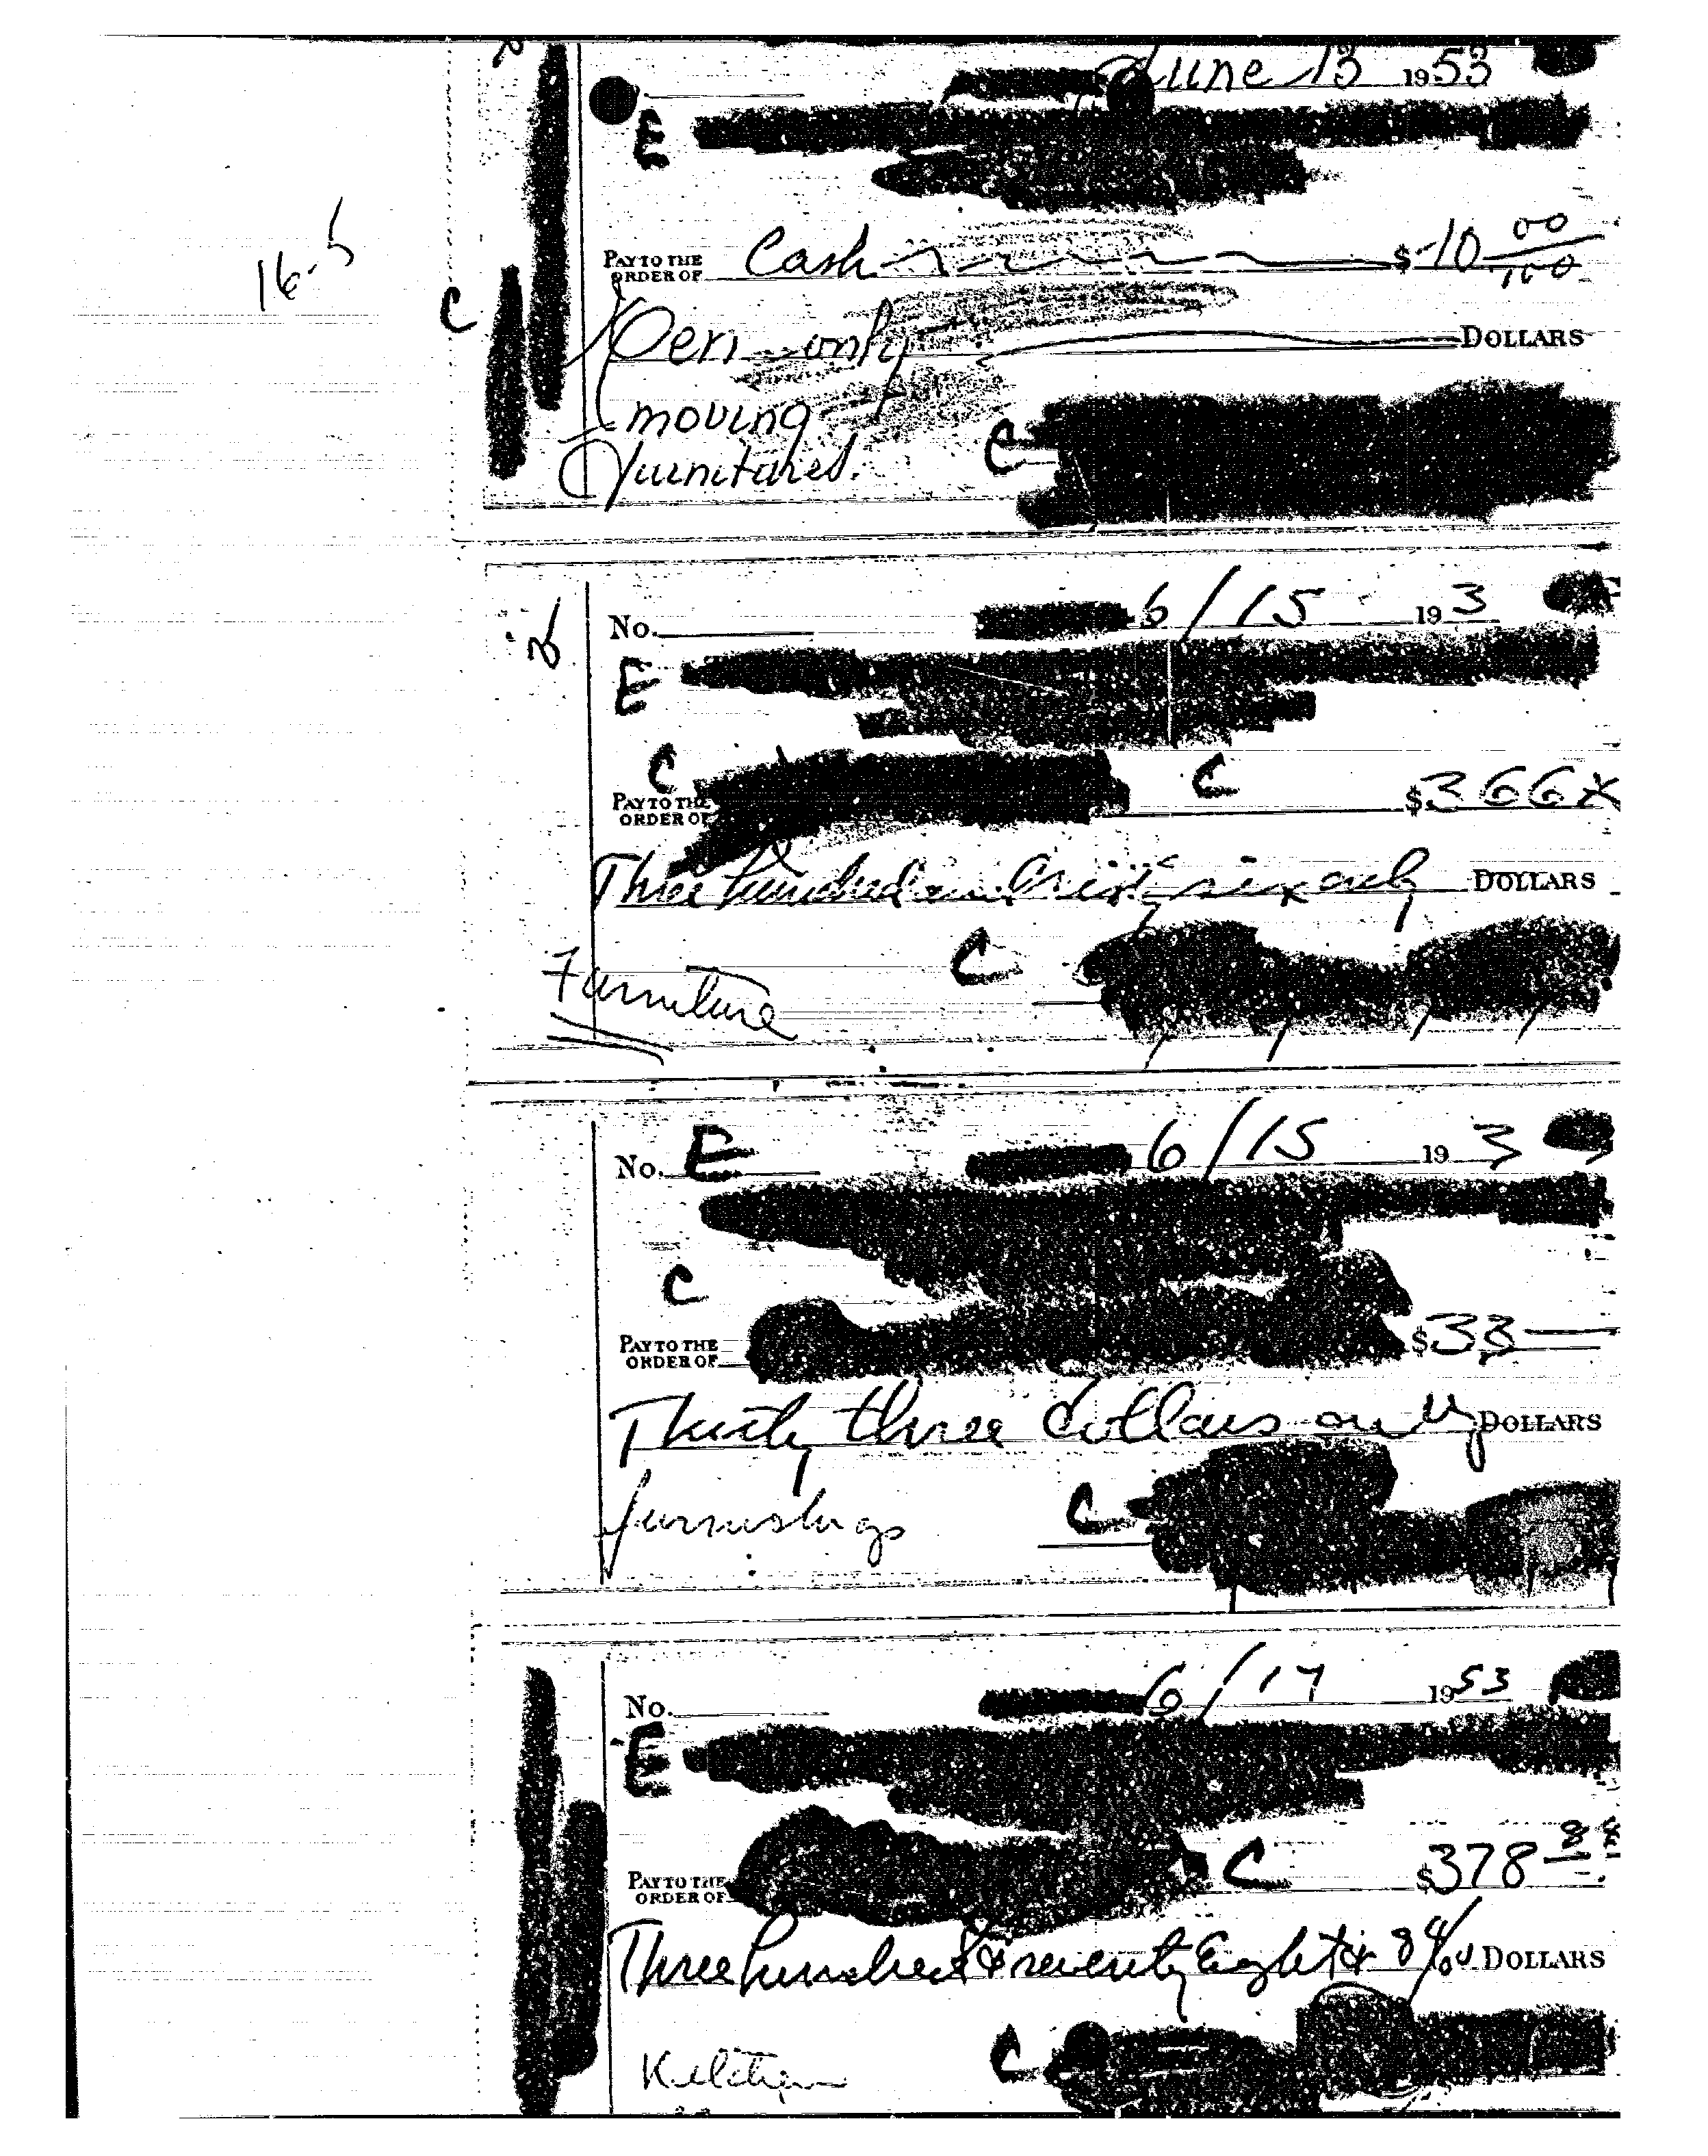 June 13 1953
E
16-5
PAY TO THE ORDER OF Cash $ 10 00/100
C
Ten only DOLLARS
moving
C
furnitures.
No. 6/15 19 3
E
C C
PAY TO THE ORDER OF $366 x
Three hundred and sixty six only DOLLARS
C
Furniture
No. E 6/15 19 3
C
PAY TO THE ORDER OF $33
Thirty three dollars only DOLLARS
furnishings C
No. 6/17 1953
E
C
PAY TO THE ORDER OF $378 88
Three hundred & seventy Eight & DOLLARS
C
Kitchen